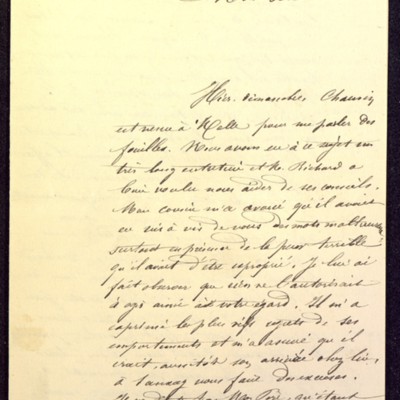 Hier, dimanche, Chauvin
est venu à Melle pour me parler des
fouilles. Nous avons eu à ce sujet un
très long entretien et Mr. Richard a
bien voulu nous aider de ses conseils.
Mon cousin m'a avoué qu'il avait
eu vis à vis de vous des mots malheureux
surtout en présence de la peur terrible
qu'il avait d'être exproprié. Je lui ai
fait observer que rien ne l'autorisait
à agir ainsi à votre égard. Il m'a
exprimé les plus vifs regrets de ses
emportements et m'a assuré qu'il
irait, aussitôt son arrivée chez lui,
à Sanxay vous faire des excuses.